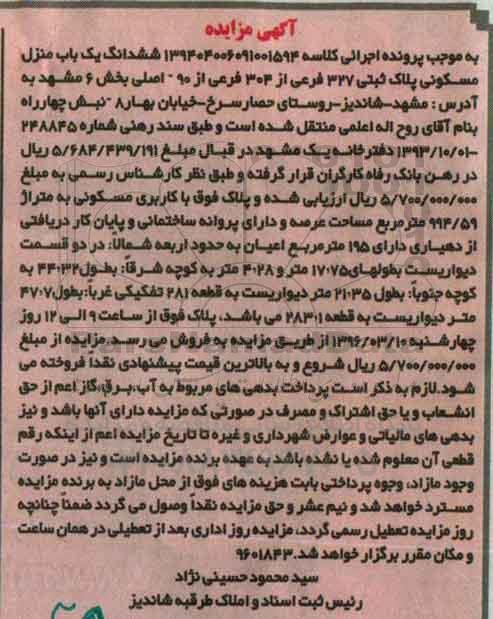 آگهی مزایده
به موجب پرونده اجرائی کلاسه ۱۳۹۴۰۴۰۰۶۰۹۱۰۰۱۵۹۴ ششدانگ یک باب منزل
مسکونی پلاک ثبتی ۳۲۷ فرعی از ۳۰۴ فرعی از ۹۰ - اصلی بخش ۶ مشهد به
آدرس : مشهد-شاندیز-روستای حصارسرخ-خیابان بهار۸ -نبش چهارراه
بنام آقای روح اله اعلمی منتقل شده است و طبق سند رهنی شماره ۲۴۸۸۴۵
-۱۳۹۳/۱۰/۰۱ دفترخانه یک مشهد در قبال مبلغ ۵/۶۸۴/۴۳۹/۱۹۱ ریال
در رهن بانک رفاه کارگران قرار گرفته و طبق نظر کارشناس رسمی به مبلغ
۵/۷۰۰/۰۰۰/۰۰۰ ریال ارزیابی شده و پلاک فوق با کاربری مسکونی به متراژ
۹۹۴/۵۹ مترمربع مساحت عرصه و دارای پروانه ساختمانی و پایان کار دریافتی
از دهیاری دارای ۱۹۵ مترمربع اعیان به حدود اربعه شمالا: در دو قسمت
دیواریست بطولهای۱۷:۰۷۵ متر و ۴:۰۲۸ متر به کوچه شرقاً: بطول۴۴:۳۲ به
کوچه جنوباً: بطول ۲۱:۳۵ متر دیواریست به قطعه ۲۸۱ تفکیکی غرباً:بطول۴۷:۰۷
متر دیواریست به قطعه ۲۸۳:۱ می باشد، پلاک فوق از ساعت ۹ الی ۱۲ روز
چهارشنبه ۱۳۹۶/۰۳/۱۰ از طریق مزایده به فروش می رسد.مزایده از مبلغ
۵/۷۰۰/۰۰۰/۰۰۰ ریال شروع و به بالاترین قیمت پیشنهادی نقداً فروخته می
شود.لازم به ذکر است پرداخت بدهی های مربوط به آب،برق،گاز اعم از حق
انشعاب و یا حق اشتراک و مصرف در صورتی که مزایده دارای آنها باشد و نیز
بدهی های مالیاتی و عوارض شهرداری و غیره تا تاریخ مزایده اعم از اینکه رقم
قطعی آن معلوم شده یا نشده باشد به عهده برنده مزایده است و نیز در صورت
وجود مازاد، وجوه پرداختی بابت هزینه های فوق از محل مازاد به برنده مزایده
مسترد خواهد شد و نیم عشر و حق مزایده نقداً وصول می گردد ضمناً چنانچه
روز مزایده تعطیل رسمی گردد، مزایده روز اداری بعد از تعطیلی در همان ساعت
و مکان مقرر برگزار خواهد شد.۹۶۰۱۸۴۳
سید محمود حسینی نژاد
رئیس ثبت اسناد و املاک طرقبه شاندیز